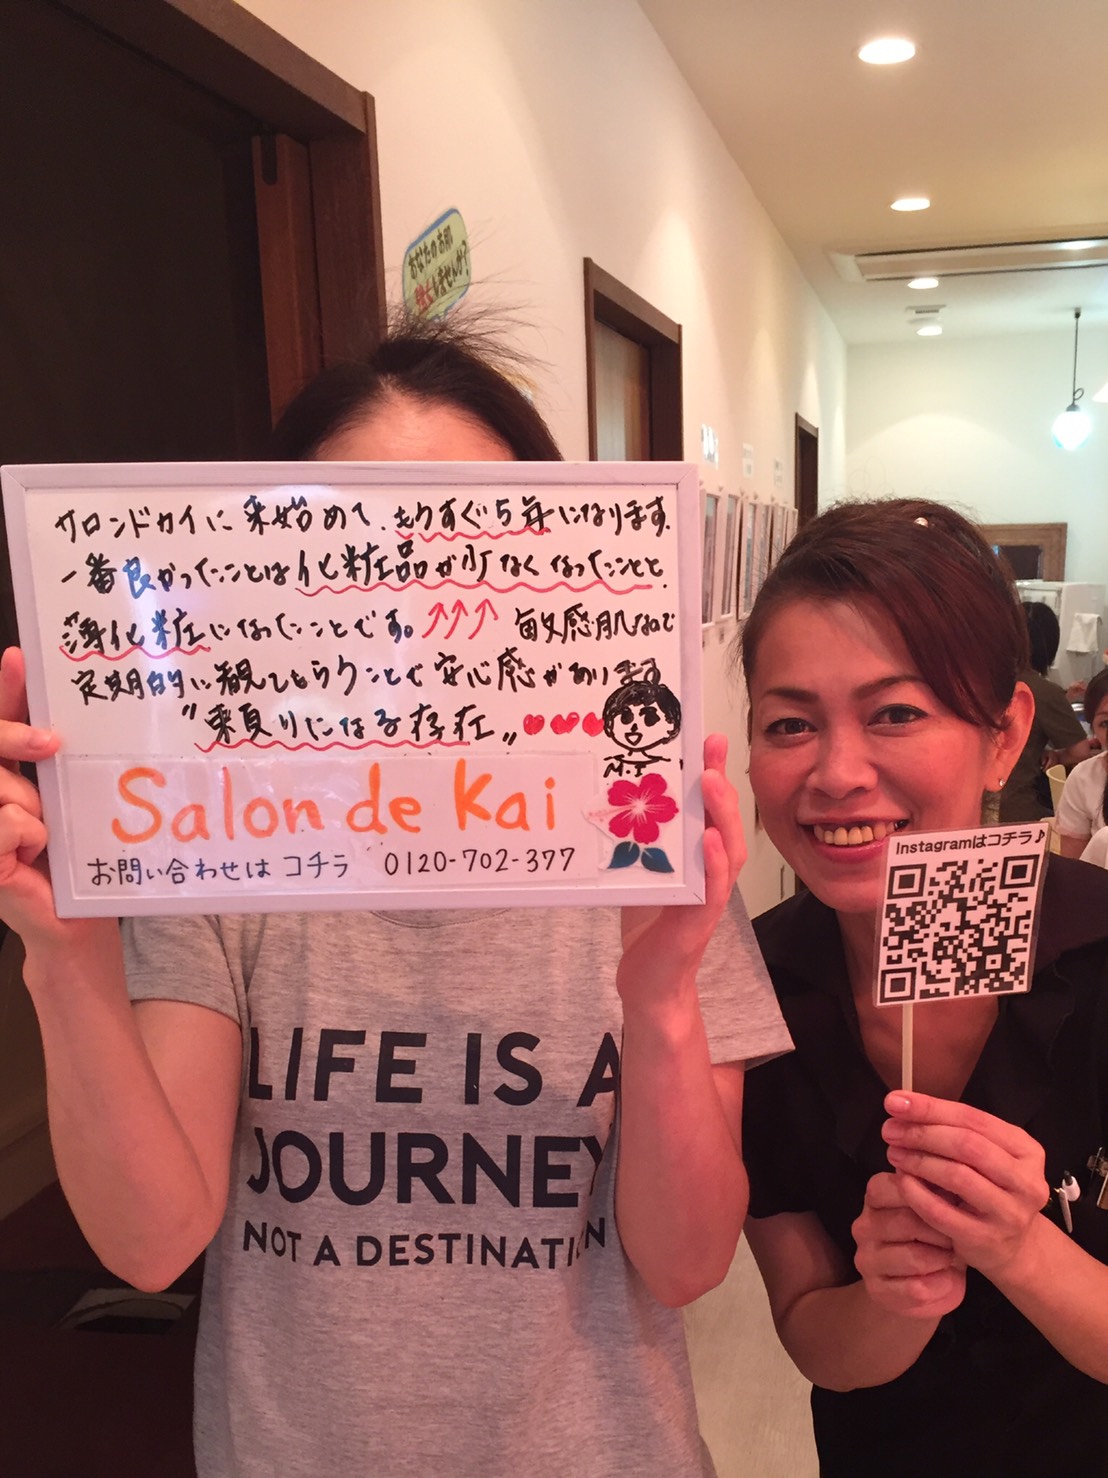 あなたのお肌
損していませんか?
サロンドカイに来始めて、もうすぐ5年になります.
一番良かったことは化粧品が少なくなったことと、
薄化粧になったことです。↑↑↑ 敏感肌なので
定期的に観てもらうことで安心感があります
"来頁りになる存在„
M.I
Salon de Kai
お問い合わせは コチラ 0120-702-377
Instagramはコチラ♪
LIFE IS A
JOURNEY
NOT A DESTINATION